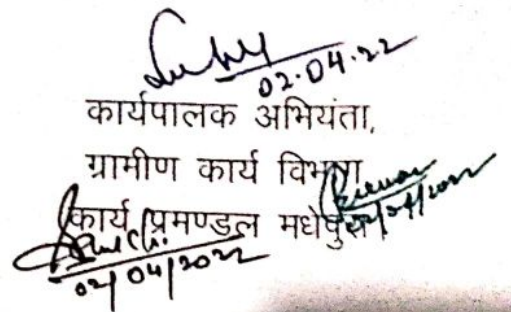 02.04.22
कार्यपालक अभियंता,
ग्रामीण कार्य विभाग
कार्य प्रमण्डल मधेपुरा।
02/04/2022